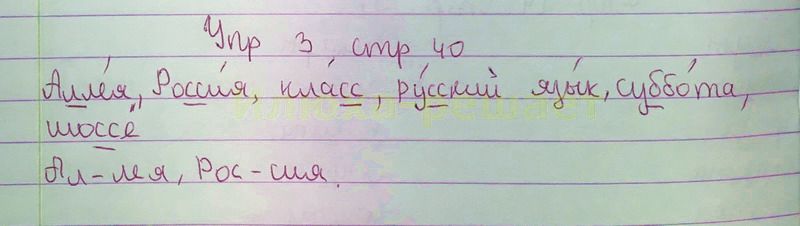 Упр 3 стр 40
Алле́я, Росси́я, кла́сс, ру́сский язы́к, суббо́та,
шоссе́
Ал-лея, Рос-сия.
илюха решает